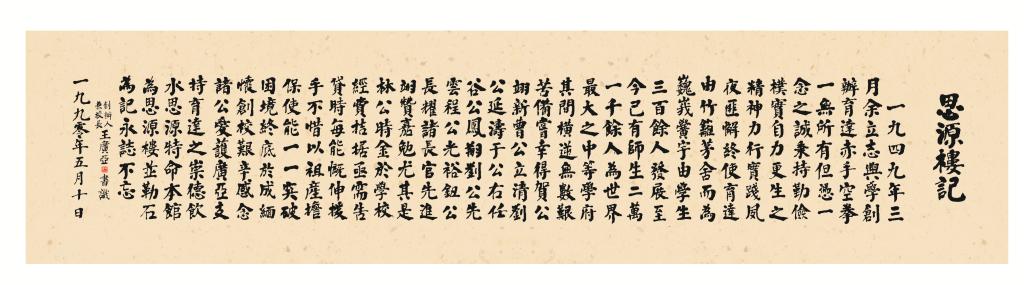 思源樓記
一九四九年三
月余立志興學創
辦育達赤手空拳
一無所有但憑一
念之誠秉持勤儉
樸實自力更生之
精神力行實踐夙
夜匪懈終使育達
由竹籬茅舍而為
巍峩黌宇由學生
三百餘人發展至
今已有師生二萬
一千餘人為世界
最大之中等學府
其間橫逆無數艱
苦備嘗幸得賀公
翊新曹公立清劉
公延濤于公右任
谷公鳳翔劉公先
雲程公光裕鈕公
長耀諸長官先進
翊贊嘉勉尤其是
林公時金於學校
經費拮据亟需告
貸時每能慨伸援
手不惜以祖產擔
保使能一一突破
困境終底於成緬
懷創校艱辛感念
諸公愛護廣亞支
持育達之崇德飲
水思源特命本館
為思源樓並勒石
為記永誌不忘
創辦人
兼校長 王廣亞 書識
一九九零年五月十日